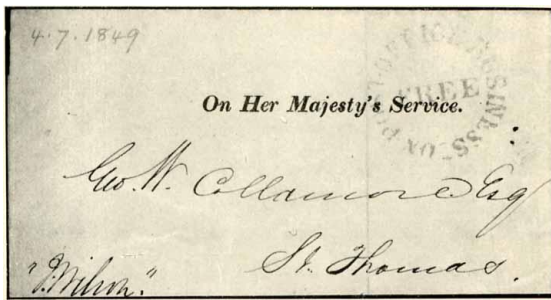 4.7.1849
ON POST OFFICE BUSINESS
FREE
On Her Majesty's Service.
Geo. W. Collamore Esq
St. Thomas.